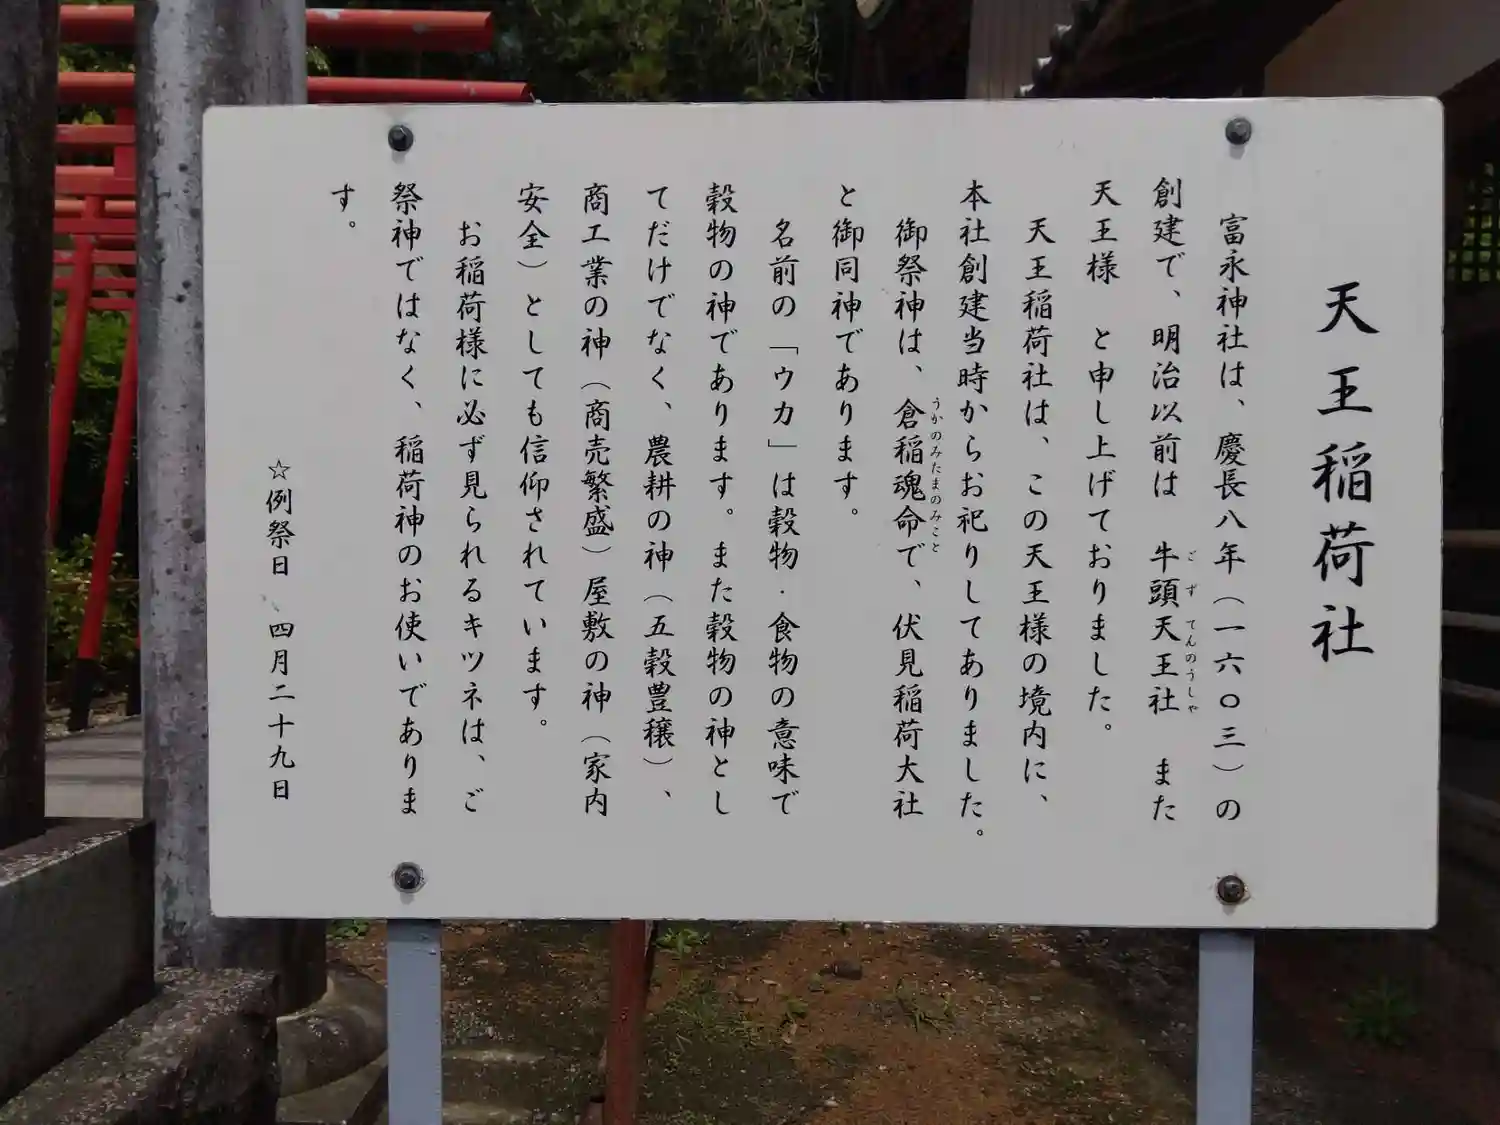 天王稲荷社
富永神社は、慶長八年（一六〇三）の
創建で、明治以前は　牛頭天王社　また
ごずてんのうしゃ
天王様　と申し上げておりました。
天王稲荷社は、この天王様の境内に、
本社創建当時からお祀りしてありました。
御祭神は、倉稲魂命で、伏見稲荷大社
うかのみたまのみこと
と御同神であります。
名前の「ウカ」は穀物・食物の意味で
穀物の神であります。また穀物の神とし
てだけでなく、農耕の神（五穀豊穣）、
商工業の神（商売繁盛）屋敷の神（家内
安全）としても信仰されています。
お稲荷様に必ず見られるキツネは、ご
祭神ではなく、稲荷神のお使いでありま
す。
☆例祭日　四月二十九日